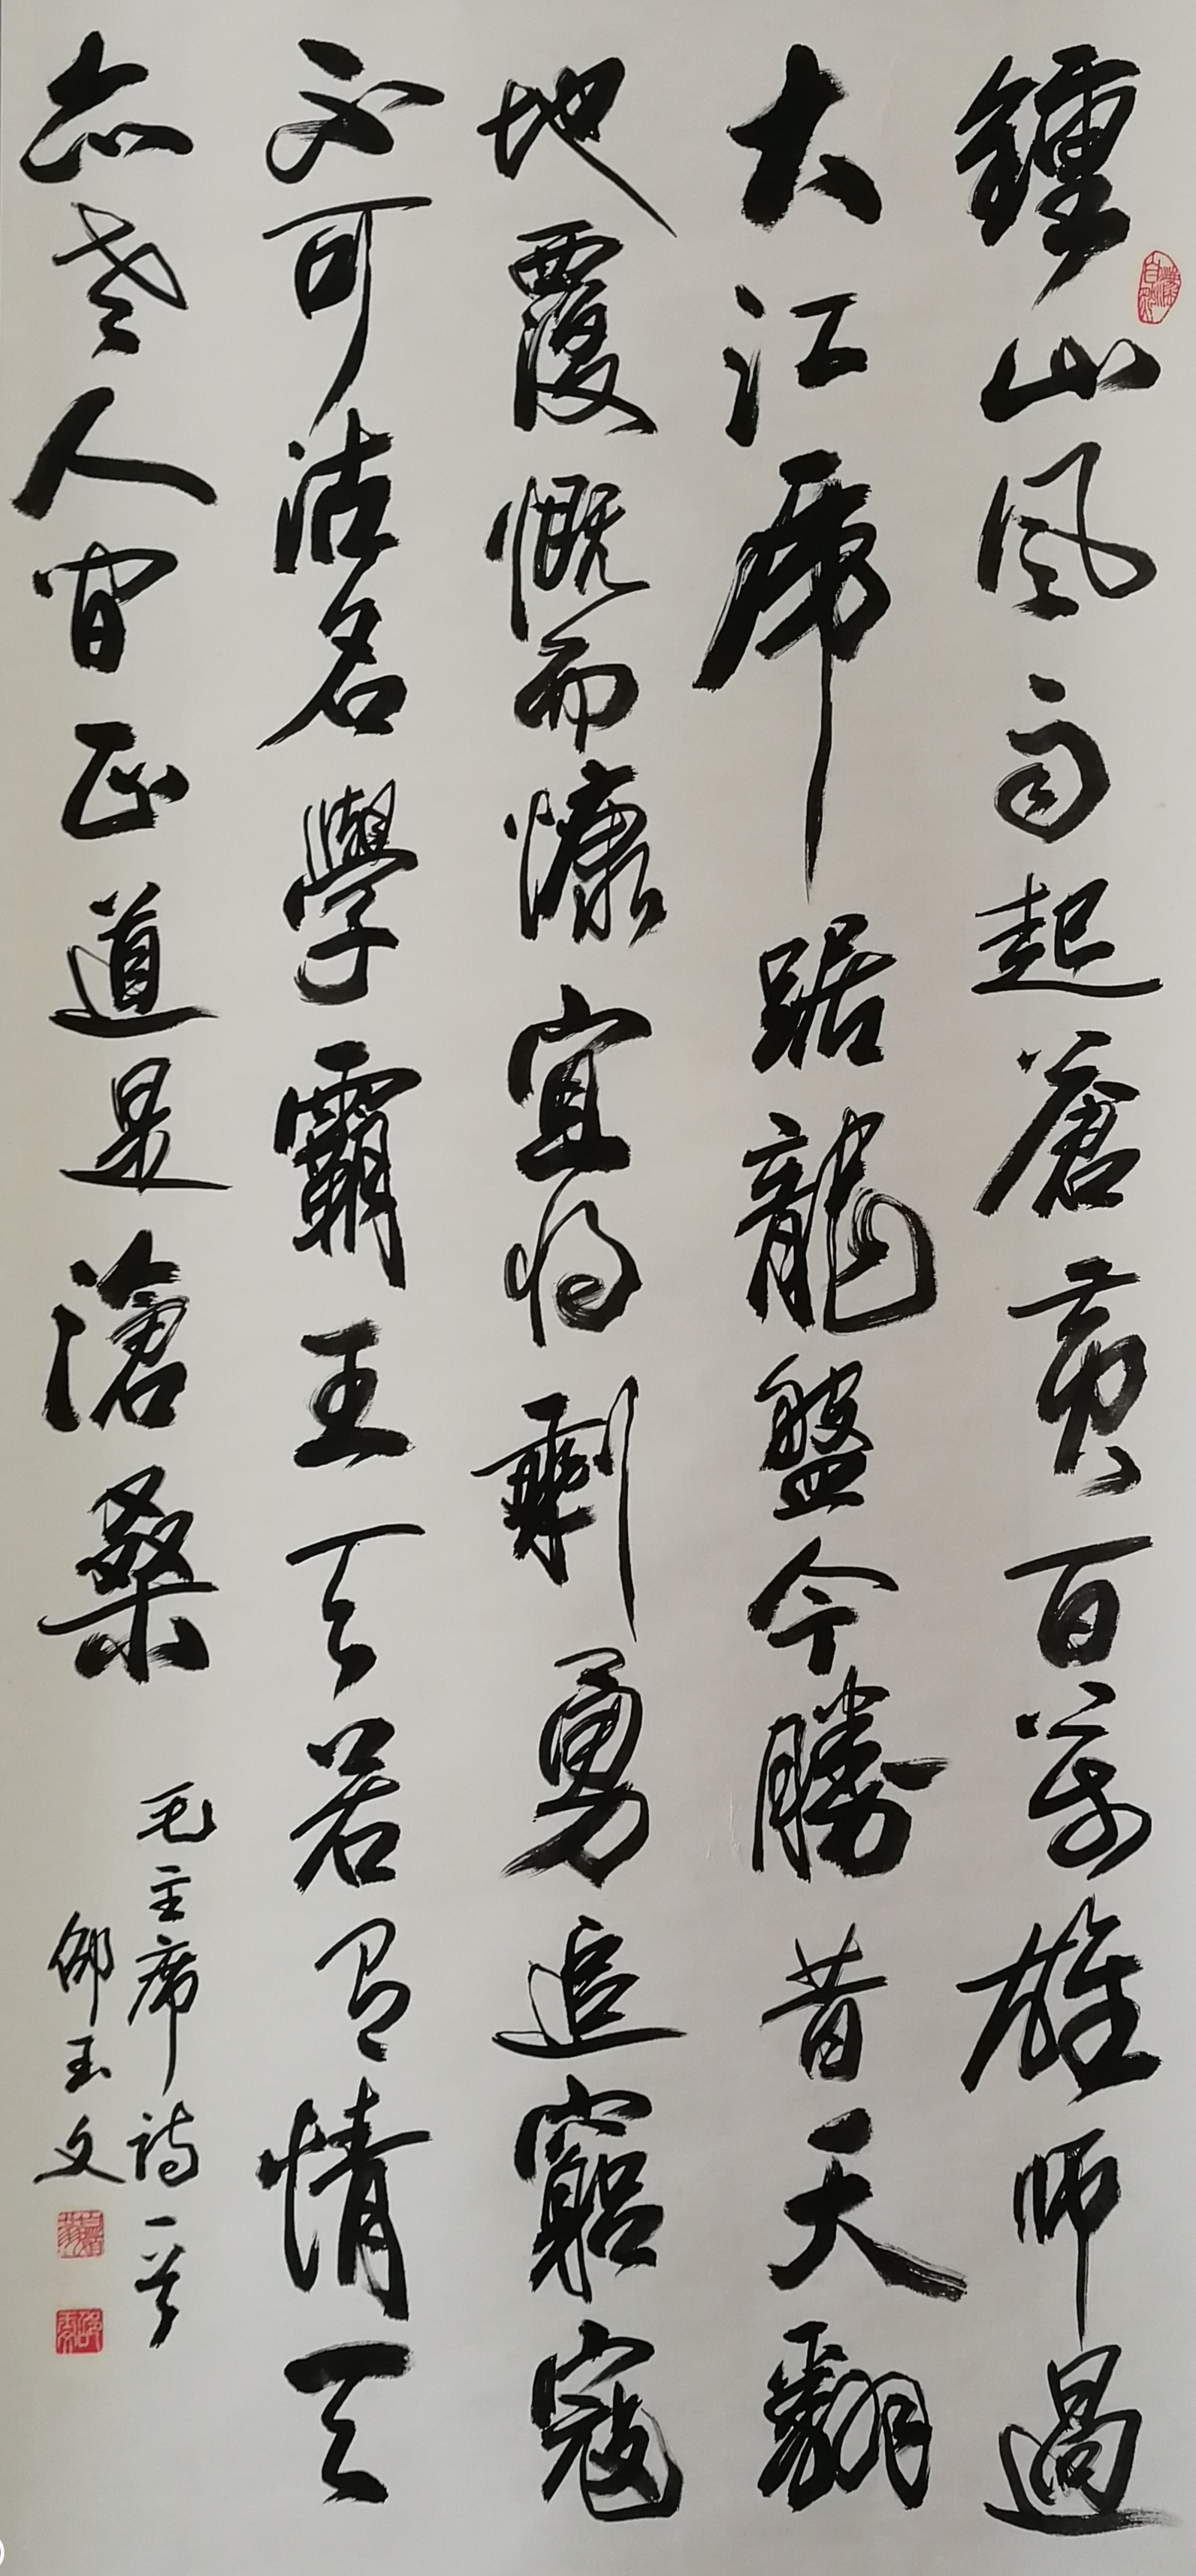 鍾山風雨起蒼黄百萬雄師過
大江虎踞龍盤今勝昔天翻
地覆慨而慷宜将剩勇追窮寇
不可沽名學霸王天若有情天
亦老人間正道是滄桑
毛主席詩一首
邵玉文